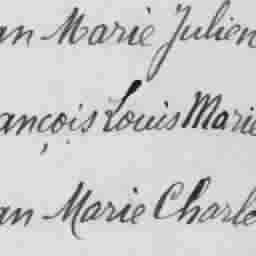 an Marie Julien
ançois Louis Marie
an Marie Charle